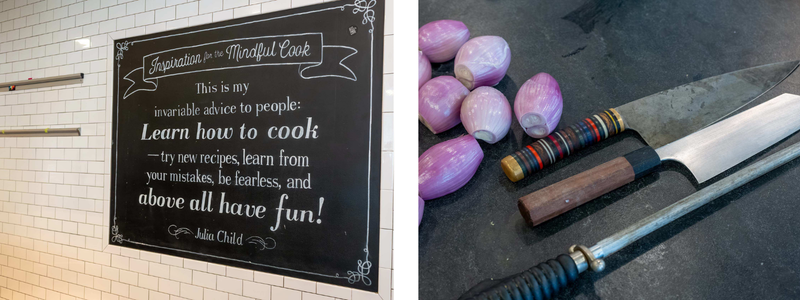 Inspiration for the Mindful Cook
This is my
invariable advice to people:
Learn how to cook
—try new recipes, learn from
your mistakes, be fearless, and
above all have fun!
Julia Child